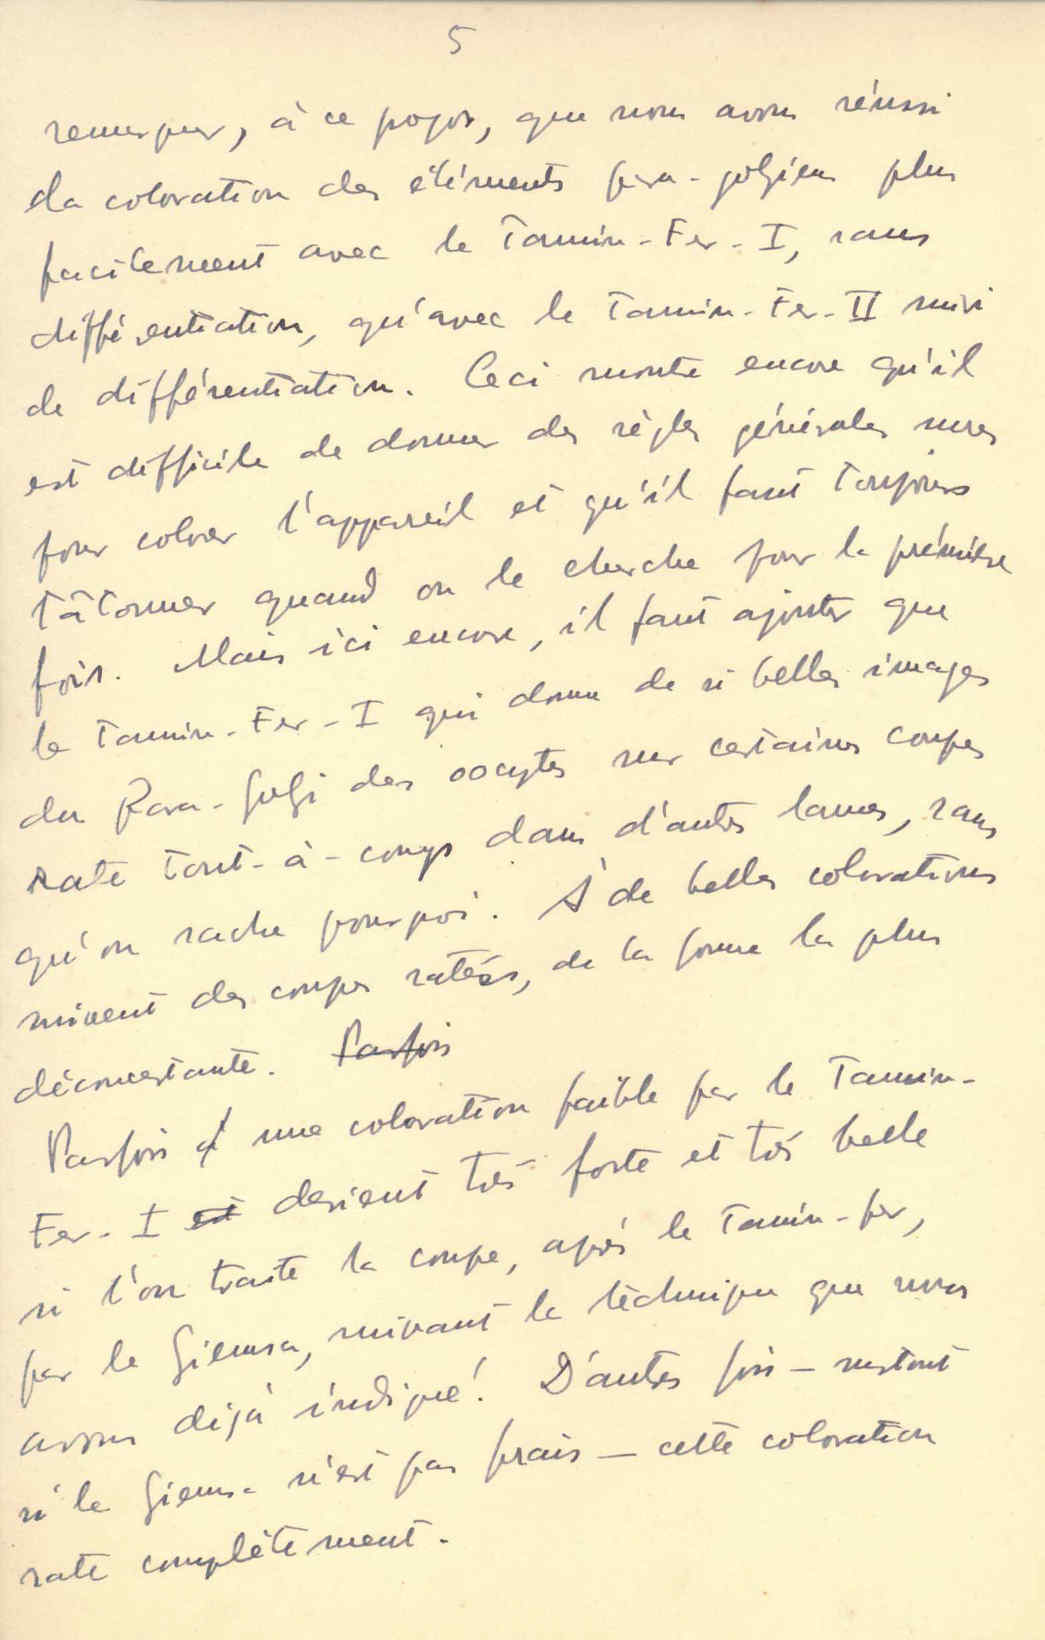 5
remarquer, à ce propos, que nous avons réussi
la coloration des éléments para-golgiens plus
facilement avec le Tannin-Fer-I, sans
différentiation, qu'avec le Tannin-Fer-II suivi
de différentiation. Ceci montre encore qu'il
est difficile de donner des règles générales sures
pour colorer l'appareil et qu'il faut toujours
tâtonner quand on le cherche pour la première
fois. Mais ici encore, il faut ajouter que
le Tannin-Fer-I qui donne de si belles images
du Para-Golgi des oocytes sur certaines coupes
rate tout-à-coup dans d'autres lames, sans
qu'on sache pourquoi. A de belles colorations
suivent des coupes ratées, de la forme la plus
déconcertante. Parfois
Parfois une coloration faible par le Tannin-
Fer-I est devient très forte et très belle
si l'on traite la coupe, après le Tannin-fer,
par le Giemsa, suivant la téchnique que nous
avons déjà indiqué! D'autres fois - surtout
si le Giemsa n'est pas frais - cette coloration
rate complètement.